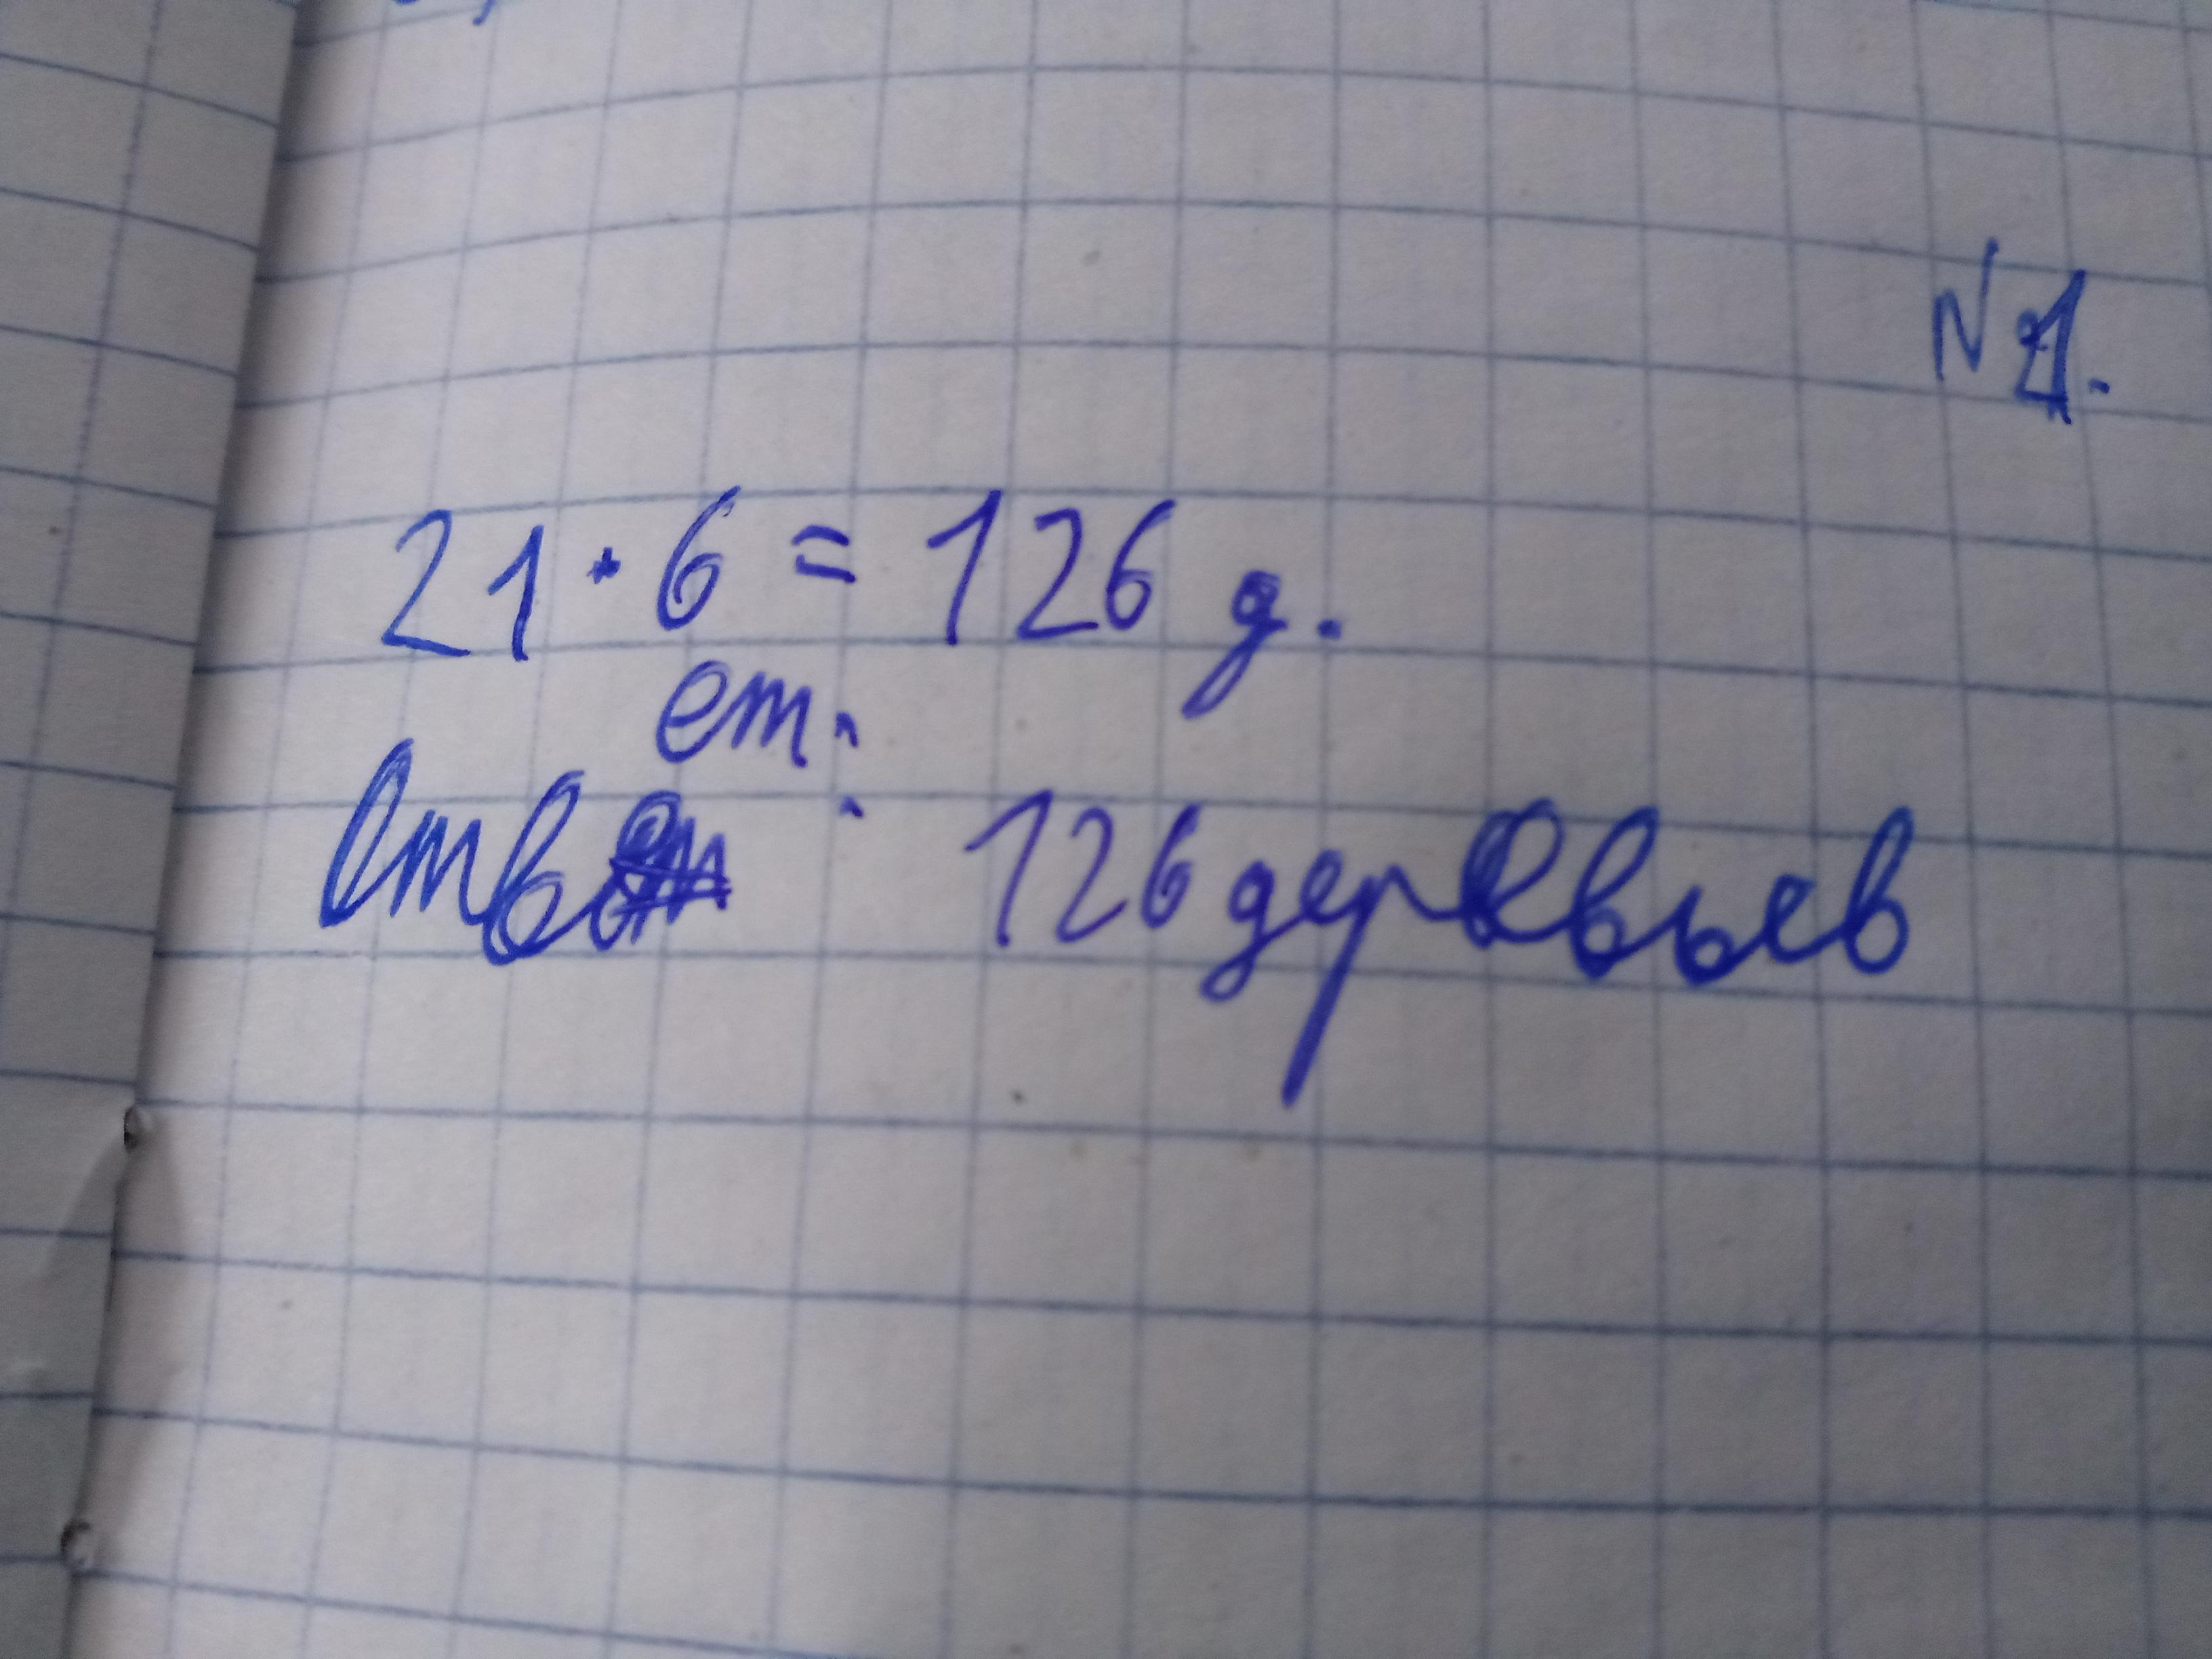 N 1.
21 · 6 = 126 д.
Ответ: 126 деревьев